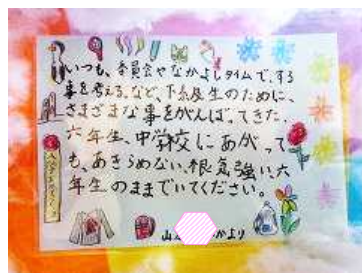 いつも、委員会やなかよしタイムで、する
事を考えるなど、下級生のために、
さまざまな事をがんばってきた、
六年生、中学校にあがって
も、あきらめない、根気強い、六
年生のままでいてください。
山 かより